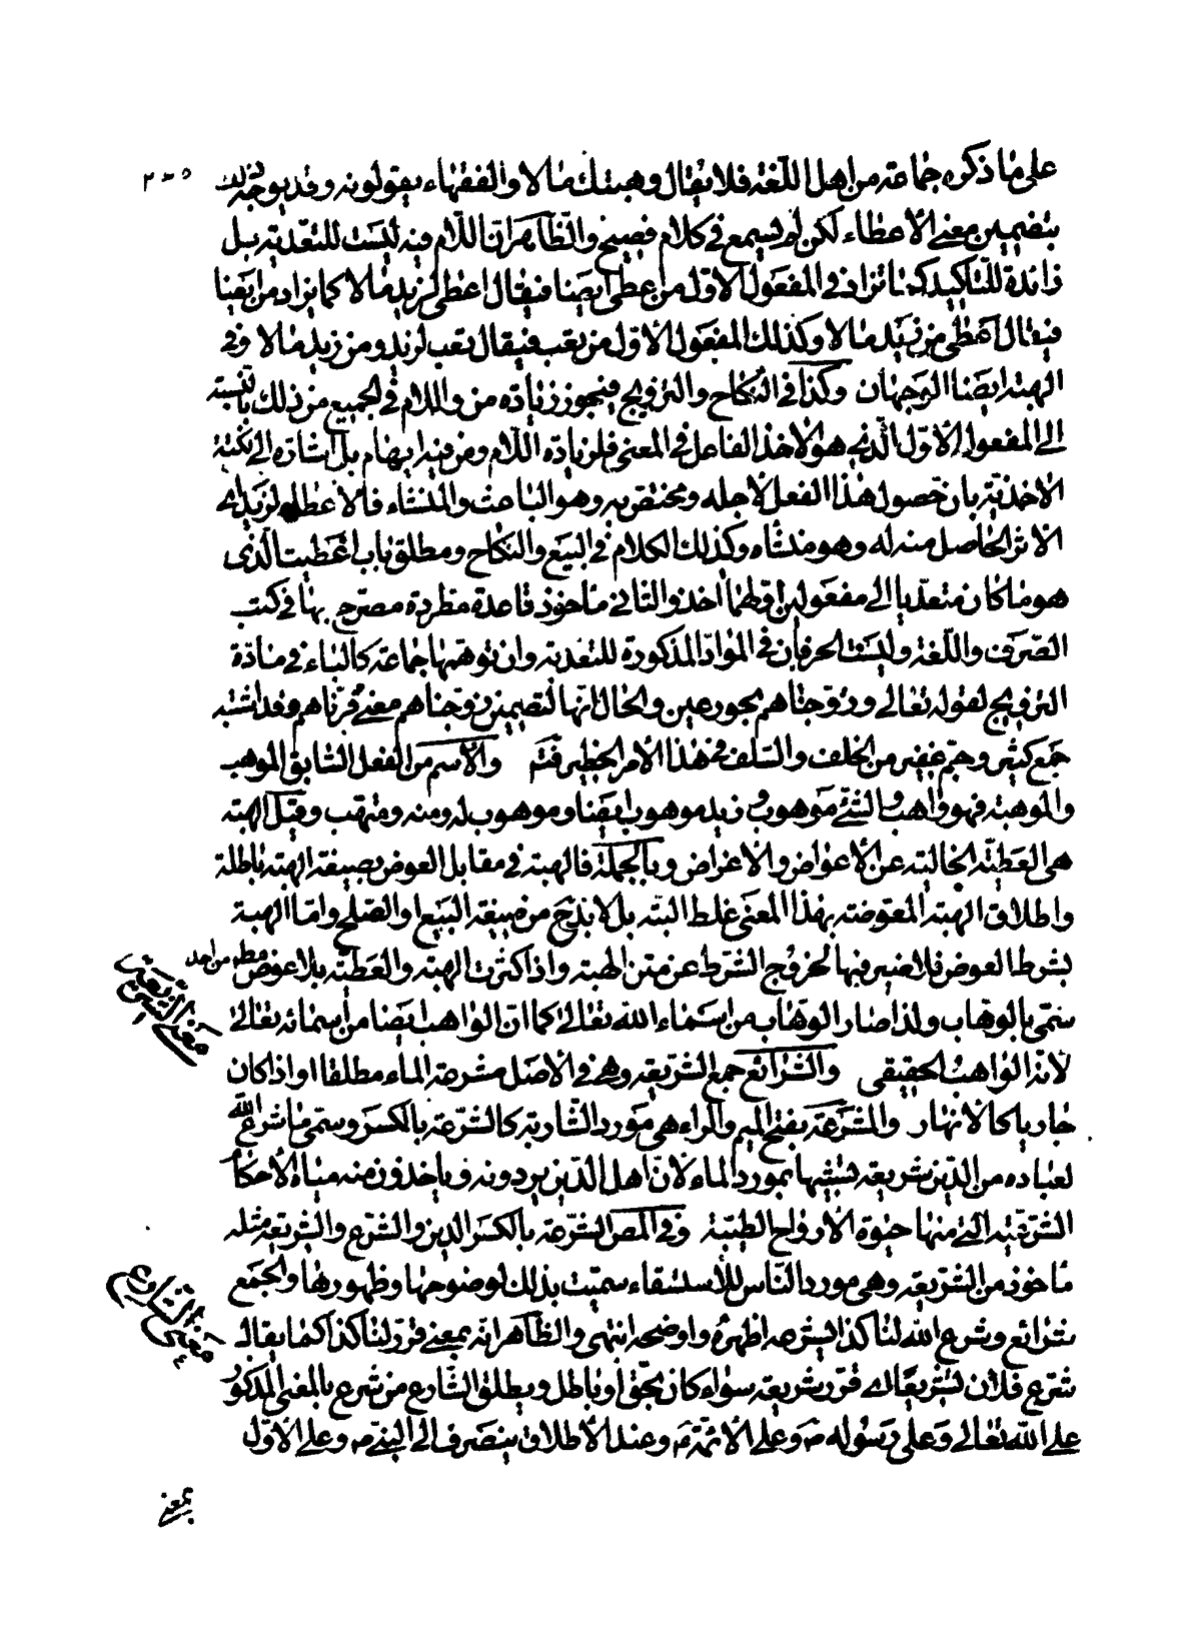 ٢٠٥
على ما ذكره جماعة من اهل اللّغة فلا يقال وهبتك مالا والفقهاء يقولونه وقد يوجّه ذلك
بتضمين معنى الاعطاء لكن لم يسمع في كلام فصيح والظّاهر انّ اللّام فيه ليست للتعدية بل
زائدة للتّاكيد كما تزاد في المفعول الاوّل من اعطى ايضا فيقال اعطى لزيد مالا كما يزاد من ايضا
فيقال اعطى من زيد مالا وكذلك المفعول الاوّل من يعب فيقال يعب لزيد ومن زيد مالا وفي
الهبة ايضا الوجهان وكذا في النّكاح والتزويج فيجوز زيادة من واللام في الجميع من ذلك بالنسبة
الى المفعول الاوّل الّذي هو الاخذ الفاعل في المعنى فلزيادة اللّام ومن فيه ايهام بل اشارة الى نكتة
الاخذية بان حصول هذا الفعل لاجله ومختص به وهو الباعث والمنشاء فالاعطاء لزيد اى
الاثر الحاصل منه له وهو منشاه وكذلك الكلام في البيع والنكاح ومطلق باب اعطيت الّذى
هو ما كان متعديا الى مفعولين اوّلهما اخذ والثاني ماخوذ قاعدة مطردة مصرح بها في كتب
الصّرف واللّغة وليست الحرفان في الموادّ المذكورة للتعدية وان توهمها جماعة كالباء في مادّة
التزويج لقوله تعالى وزوجناهم بحور عين والحال انّها لتضمين زوجناهم معنى قرنّاهم وقد اشتبه
جمع كثير وجم غفير من الخلف والسّلف في هذا الامر الخطير فتم والاسم من الفعل السّابق الموهب
والموهبة فهو واهب والشئ موهوب وزيد موهوب ايضا وموهوب له ومنه ومتهب وقيل الهبة
هى العطيّة الخالية عن الاعواض والاغراض وبالجملة فالهبة في مقابل العوض بصيغة الهبة باطلة
واطلاق الهبة المعوضة بهذا المعنى غلط البتّه بل لابدّ ح من صيغة البيع او الصّلح وامّا الهبة
بشرط العوض فلا ضير فيها لخروج الشّرط عن متن الهبة واذا كثرت الهبة والعطيّة بلا عوض مط من احد
سمّى بالوهاب ولذا صار الوهّاب من اسماء الله تعالى كما انّ الواهب ايضا من اسمائه تعالى
لانّه الواهب الحقيقى والشّرائع جمع الشّريعة وهى في الاصل مشرعة الماء مطلقا او اذا كان
جاريا كالانهار والمشرعة بفتح الميم والراء هى مورد الشّاربة كالشّرعة بالكسر وسمّى ما شرع الله
لعباده من الدّين شريعة تشبيها بمورد الماء لانّ اهل الدّين يردونه وياخذون منه مياه الاحكا
الشّرعيّة الّتى منها حيوة الارواح الطيّبة وفى المص الشّرعة بالكسر الدين والشّرع والشريعة مثله
ماخوذ من الشّريعة وهى مورد النّاس للأستسقاء سمّيت بذلك لوضوحها وظهورها والجمع
شرائع وشرع الله لنا كذا يشرعه اظهره واوضحه انتهى والظّاهر انّه بمعنى قرّر لنا كذا كما يقال
شرع فلان تشريعا اى قرّر شريعة سواء كان بحقّ او باطل ويطلق الشّارع من شرع بالمعنى المذكور
على الله تعالى وعلى رسوله ص وعلى الائمة ع وعند الاطلاق ينصرف الى النبى ص وعلى الاوّل
معنى الشريعة
معنى الشارع
بمعنى